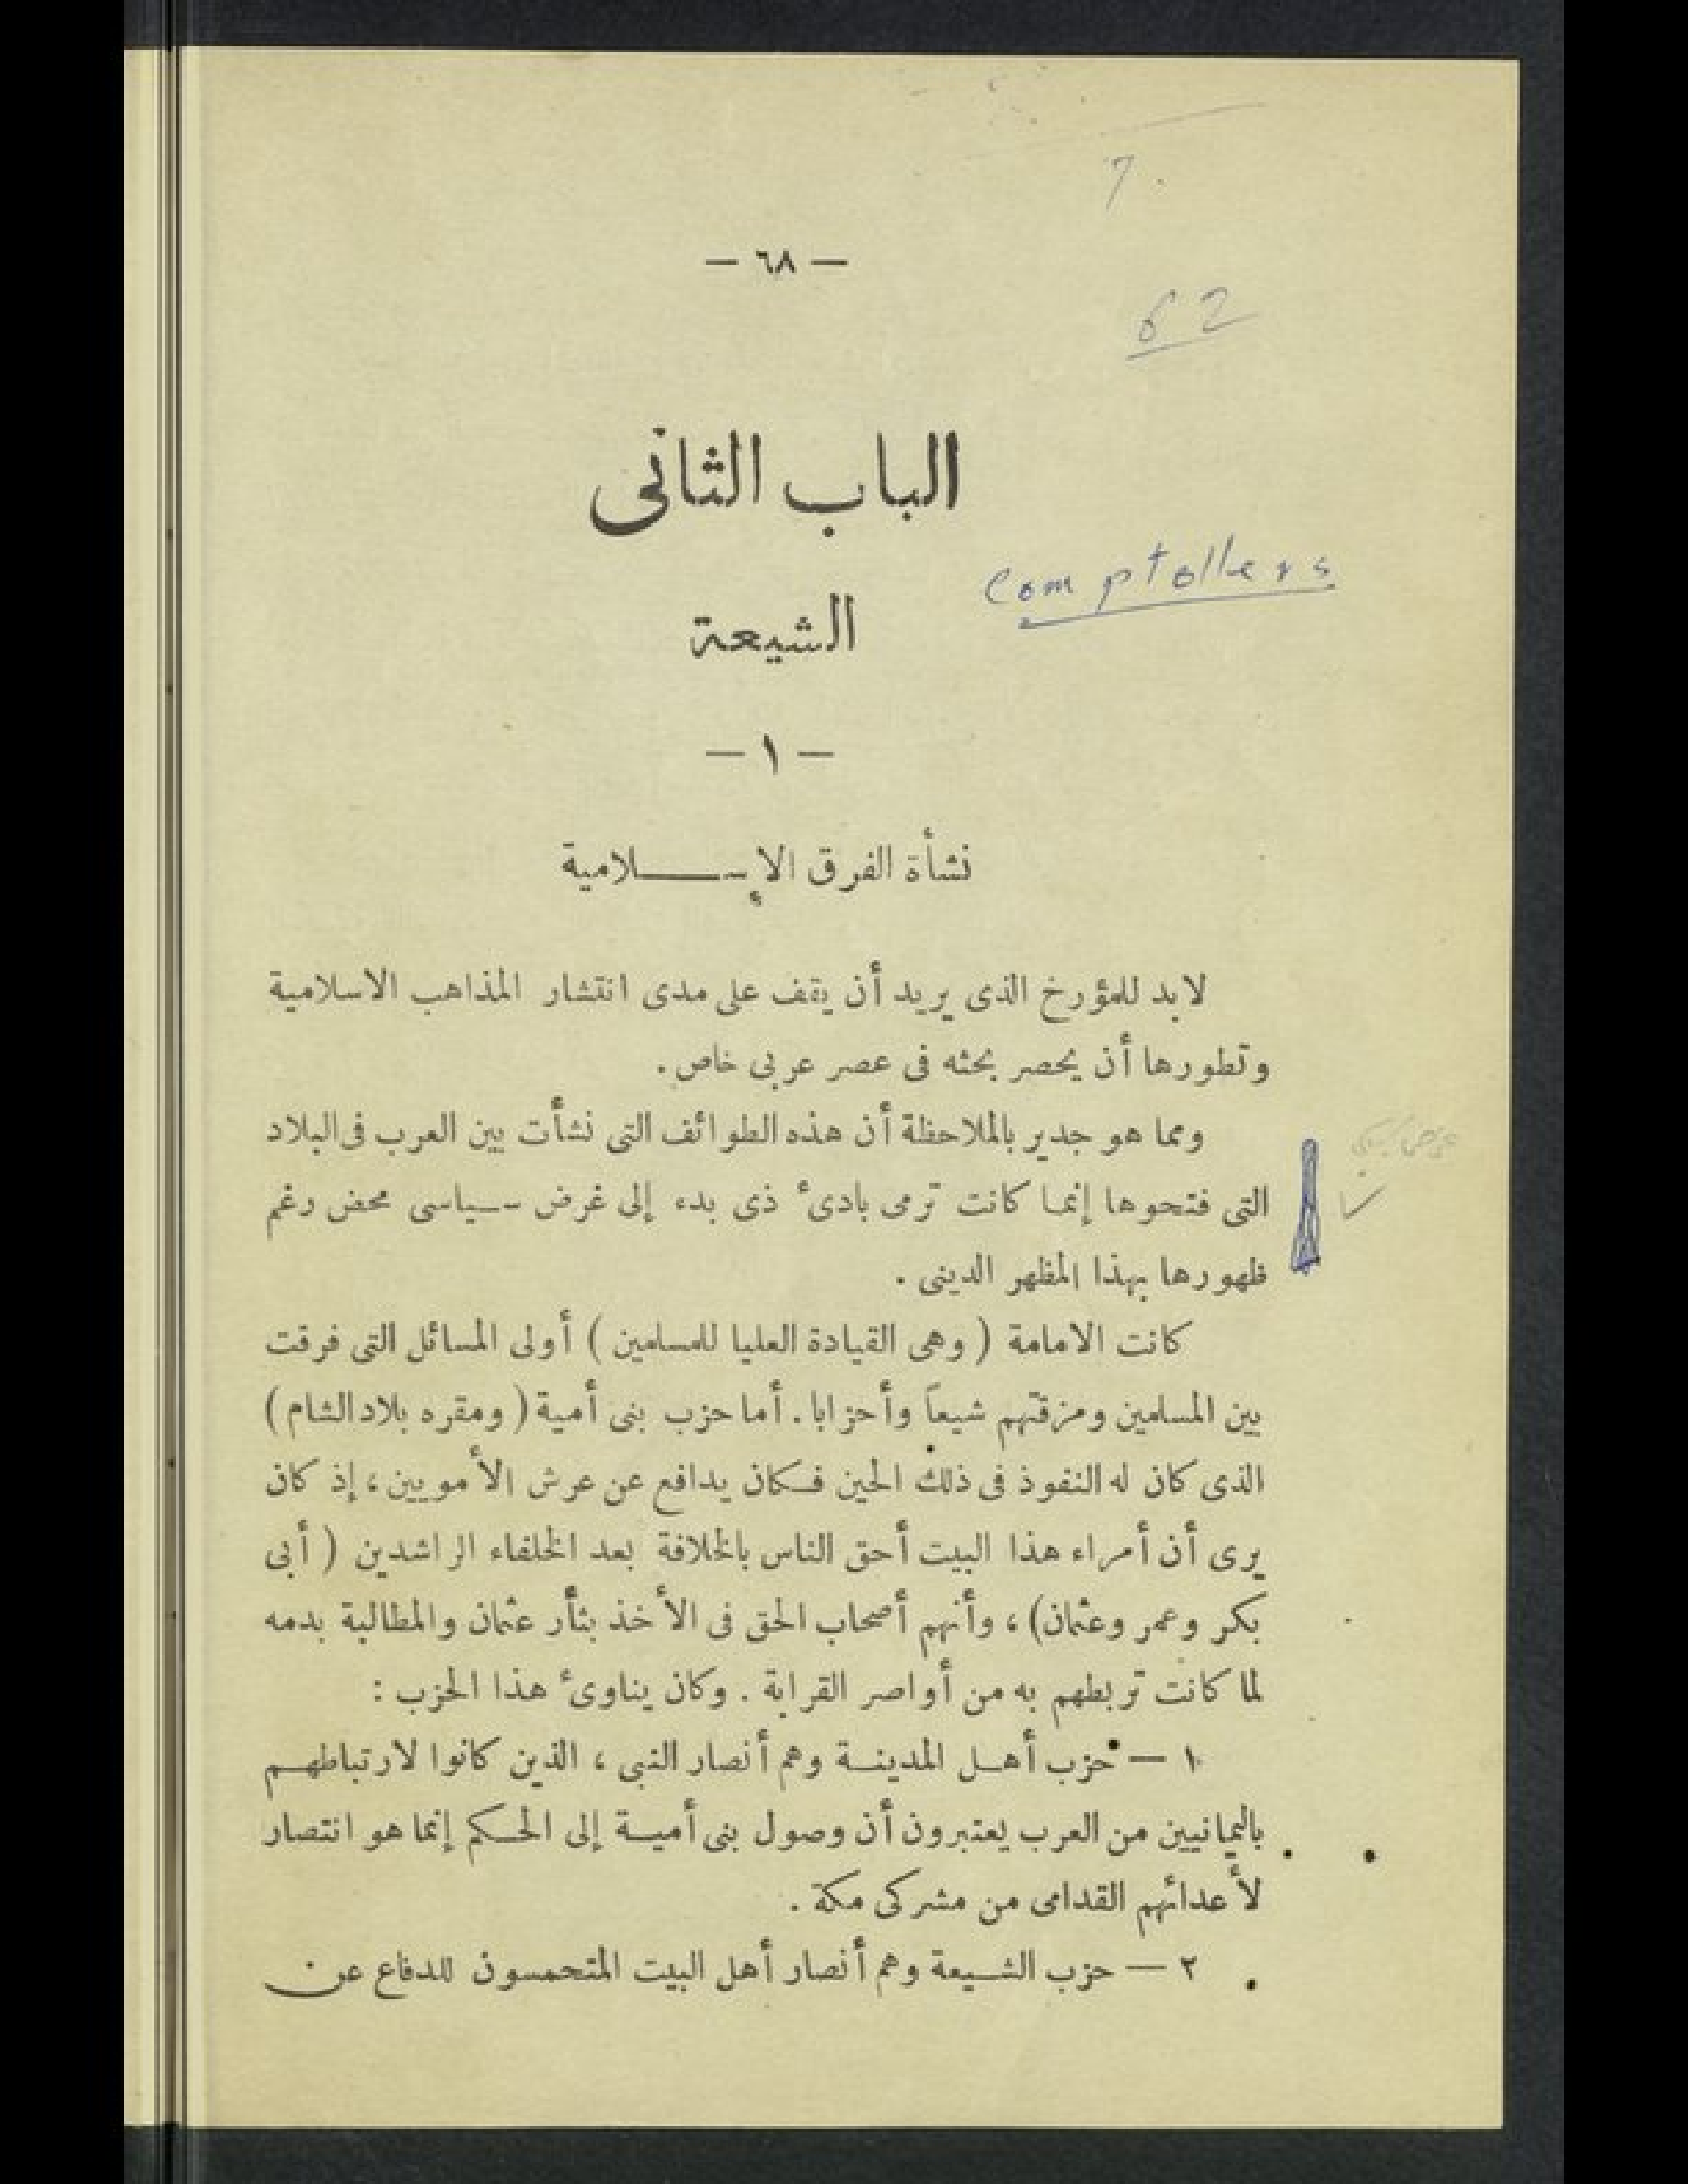 7
— ٦٨ —
62
الباب الثانى
Comptollers
الشيعة
— ١ —
نشأة الفرق الإسلامية
لابد للمؤرخ الذى يريد أن يقف على مدى انتشار المذاهب الاسلامية
وتطورها أن يحصر بحثه فى عصر عربى خاص .
ومما هو جدير بالملاحظة أن هذه الطوائف التى نشأت بين العرب فى البلاد
التى فتحوها إنما كانت ترمى بادئ ذى بدء إلى غرض سياسى محض رغم
ظهورها بهذا المظهر الدينى .
كانت الامامة ( وهى القيادة العليا للمسلمين ) أولى المسائل التى فرقت
بين المسلمين ومزقتهم شيعاً وأحزابا . أما حزب بنى أمية ( ومقره بلاد الشام )
الذى كان له النفوذ فى ذلك الحين فكان يدافع عن عرش الأمويين ، إذ كان
يرى أن أمراء هذا البيت أحق الناس بالخلافة بعد الخلفاء الراشدين ( أبى
بكر وعمر وعثمان ) ، وأنهم أصحاب الحق فى الأخذ بثأر عثمان والمطالبة بدمه
لما كانت تربطهم به من أواصر القرابة . وكان يناوئ هذا الحزب :
١ — حزب أهل المدينة وهم أنصار النبى ، الذين كانوا لارتباطهم
باليمانيين من العرب يعتبرون أن وصول بنى أمية إلى الحكم إنما هو انتصار
لأعدائهم القدامى من مشركى مكة .
٢ — حزب الشيعة وهم أنصار أهل البيت المتحمسون للدفاع عن